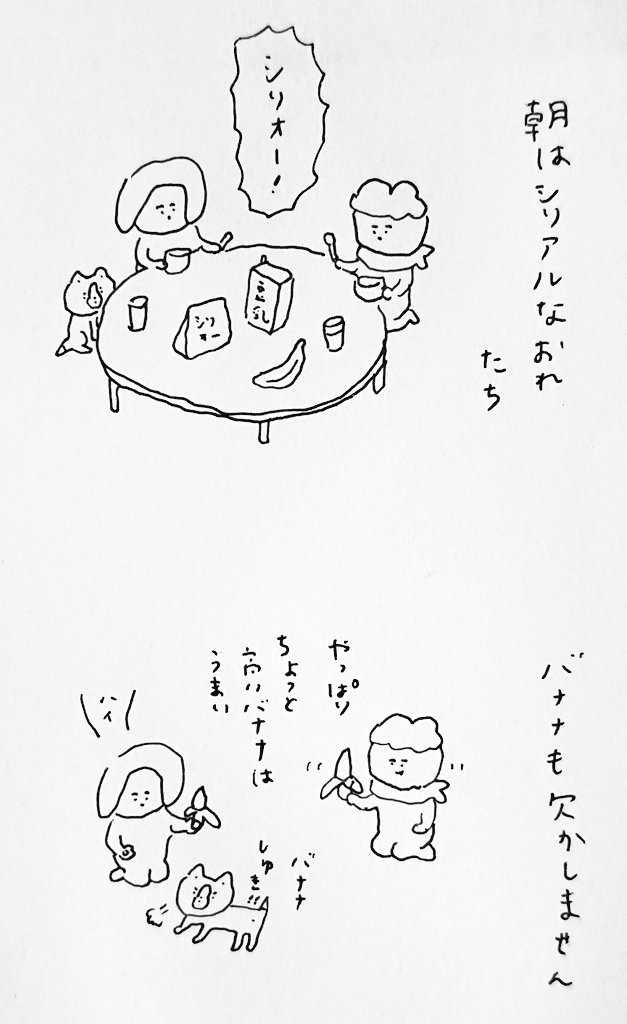 朝はシリアルなおれ
たち
シリオー!
豆乳
シリ
オー
バナナも欠かしません
やっぱり
ちょっと
高いバナナは
うまい
ハイ
バナナ
しゅき!!